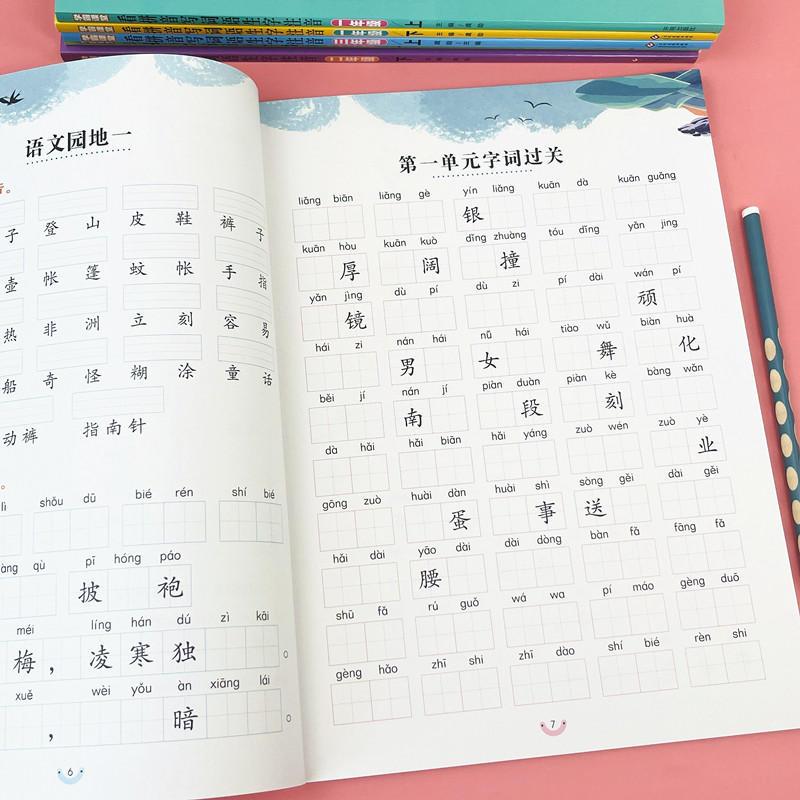 看拼音写词语生字注音 一年级/上
看拼音写词语生字注音 一年级/下
看拼音写词语生字注音 二年级/上
语文园地一
子 登 山 皮 鞋 裤 子
壶 帐 篷 蚊 帐 手 指
热 非 洲 立 刻 容 易
船 奇 怪 糊 涂 童 话
动裤 指南针
lì shǒu dū bié rén shí bié
qù pī hóng páo
披 袍
méi líng hán dú zì kāi
梅，凌寒独 。
xuě wèi yǒu àn xiāng lái
， 暗 。
6
第一单元字词过关
liǎng biān liǎng gè yín liǎng kuān dà kuān guǎng
银
kuān hòu kuān kuò dǐng zhuàng tóu dǐng yǎn jing
厚 阔 撞
yǎn jìng dù pí dù zi pí dài wán pí
镜 顽
hái zi nán hái nǚ hái tiào wǔ biàn huà
男 女 舞 化
běi jí nán jí piàn duàn piàn kè bàng wǎn
南 段 刻
dà hǎi hǎi biān hǎi yáng zuò wén zuò yè
业
gōng zuò huài dàn huài shì sòng gěi dài gěi
蛋 事 送
hǎi dài yāo dài dài dòng bàn fǎ fāng fǎ
腰
shū fǎ rú guǒ wá wa pí máo gèng duō
gèng hǎo zhī shi zhī dào shí bié rèn shi
7